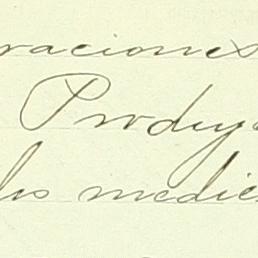 raciones
Produy
les medie